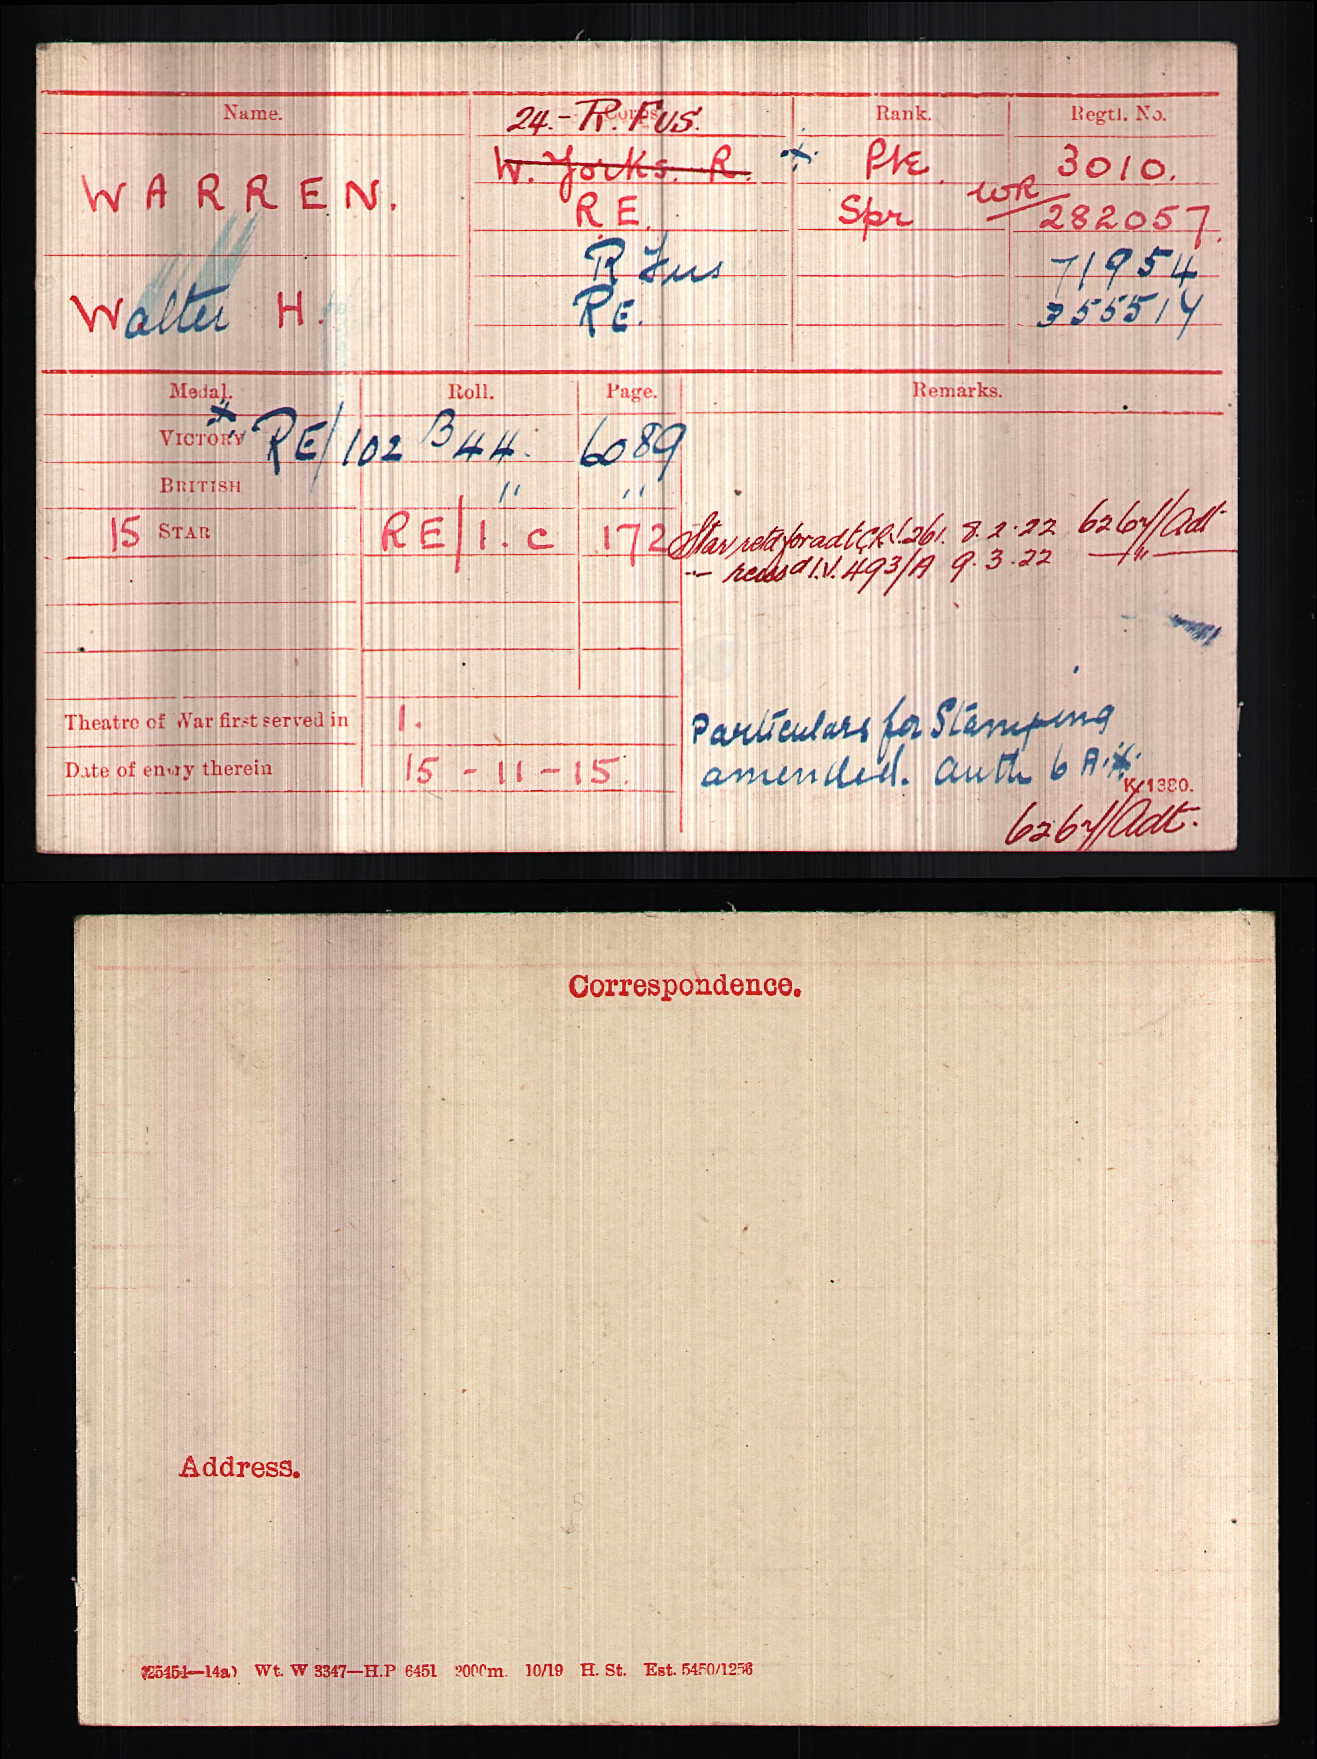 Name. Corps. Rank. Regtl. No.
24.- R. Fus.
W. Yorks. R. Pte. 3010.
WARREN.
R E. Spr WR 282057.
R Fus 71954
Walter H. R E. 355514
Medal. Roll. Page. Remarks.
VICTORY RE/102 B 44. 6089
BRITISH " "
15 STAR RE/1.C 172 Star retd for adt 8.2.22 6267/Adt
— 493/A 9.3.22 — " —
Theatre of War first served in 1.
Particulars for Stamping
Date of entry therein 15-11-15.
amended. Auth 6 A.
K 1380.
6267/Adt.
Correspondence.
Address.
(25454—14a) Wt. W 3347—H.P 6451 2000m. 10/19 H. St. Est. 5450/1256